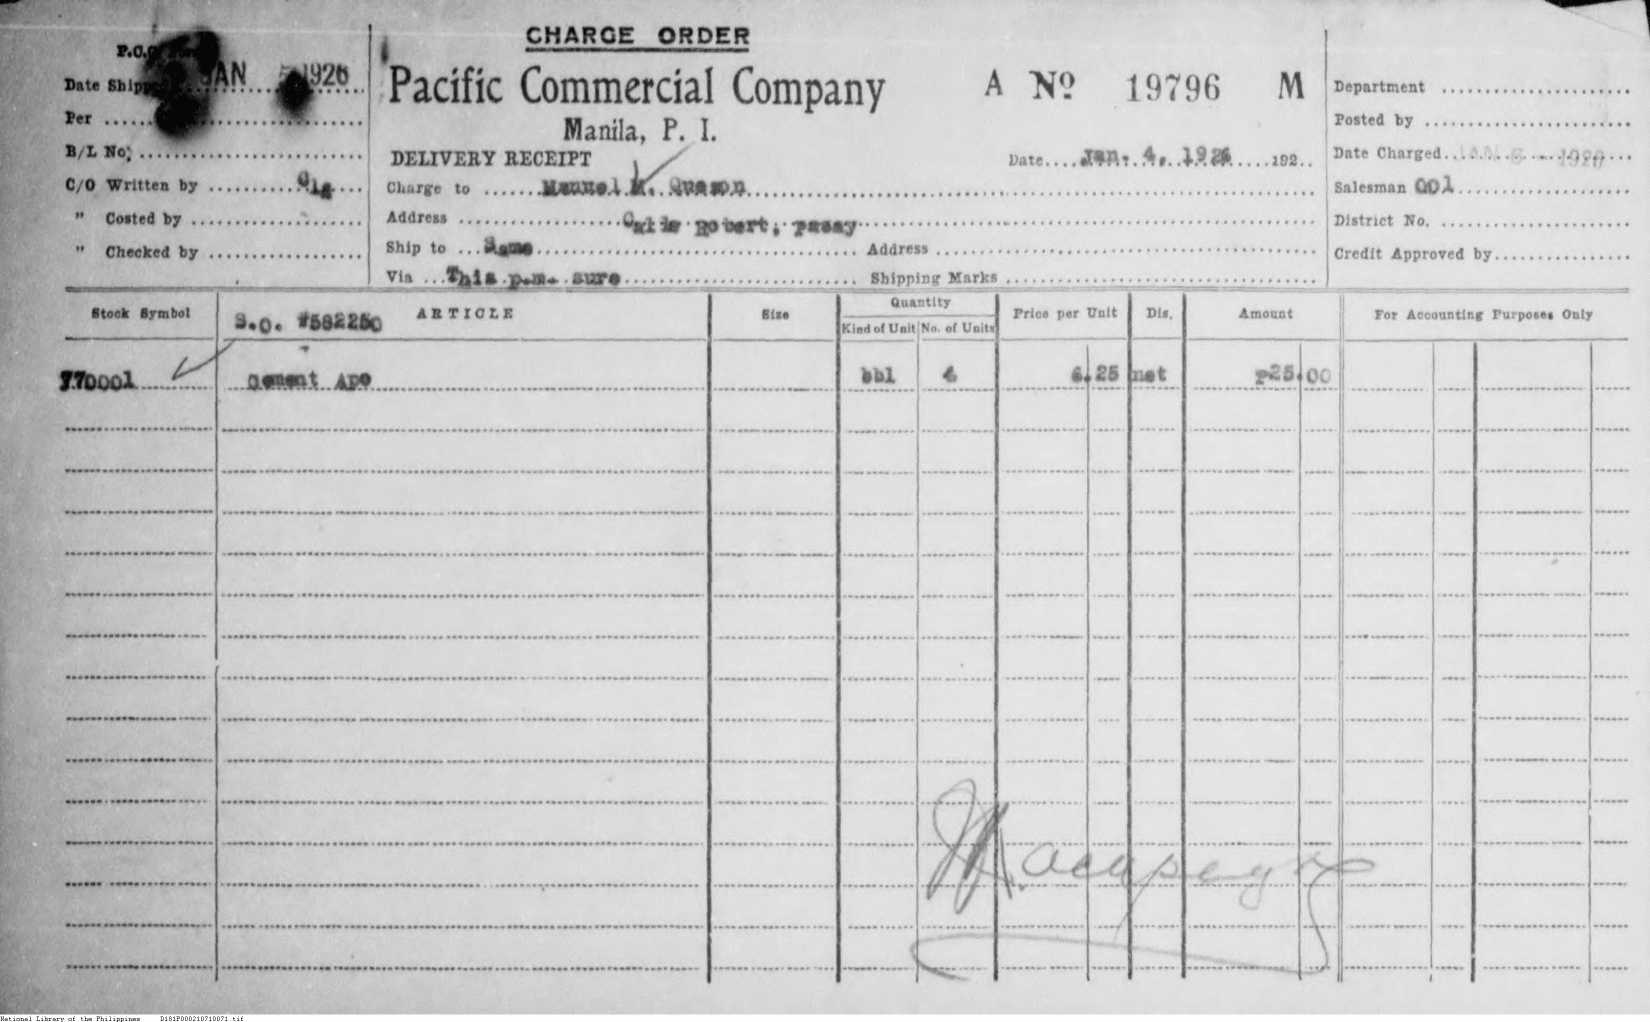 CHARGE ORDER
Pacific Commercial Company
Manila, P. I.
A No 19796 M
DELIVERY RECEIPT
Date Jan. 4, 1926 192
P.O.
Date Shipped JAN 5 1926
Per
B/L No.
C/O Written by
" Costed by
" Checked by
Charge to Manuel M. Queson
Address Calle Robert, Pasay
Ship to Same Address
Via This p.m. sure Shipping Marks
Department
Posted by
Date Charged JAN 5 - 1926
Salesman 001
District No.
Credit Approved by
Stock Symbol ARTICLE Size Quantity Price per Unit Dis. Amount For Accounting Purposes Only
Kind of Unit No. of Units
S.O. #582250
770001 Cement Apo bbl 4 6.25 net ₱25.00
National Library of the Philippines D181P000210710071.tif